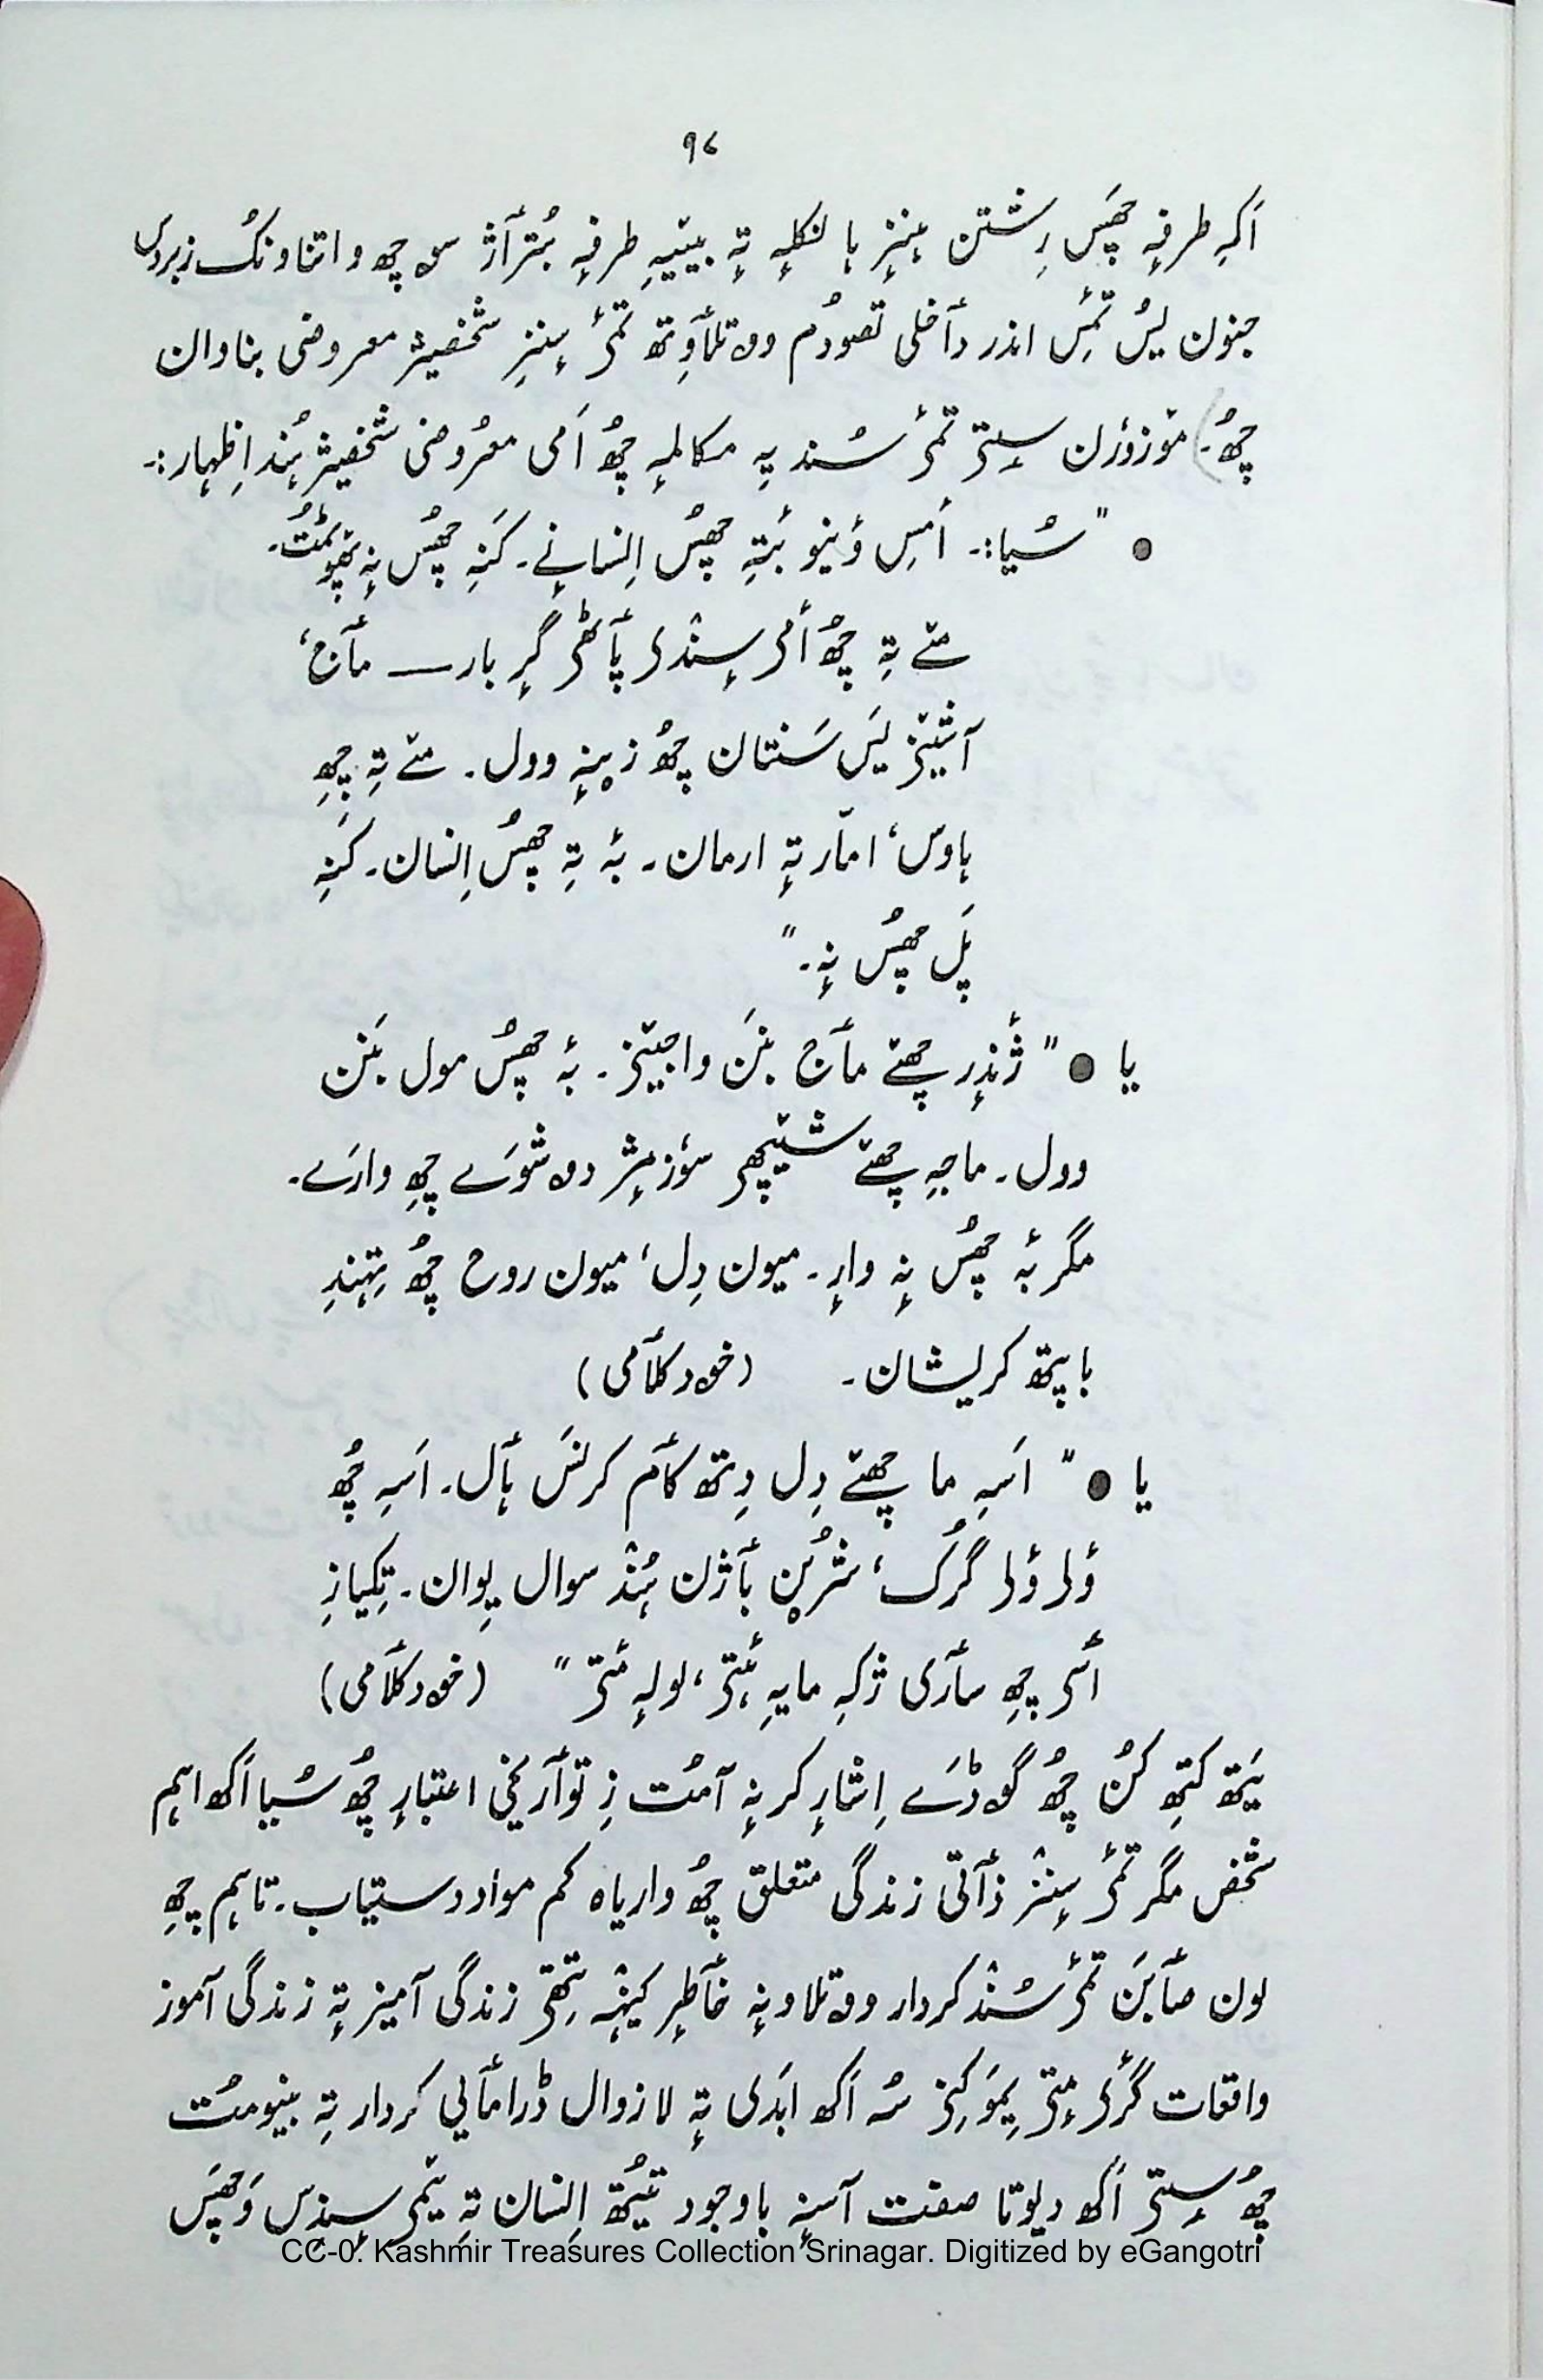 ۹۷
اَکہِ طرفہٕ چھَس رِشتن ہٕنٛزٕ ہانکلہٕ تہٕ بیٚیہِ طرفہٕ بُتراَژ سۭ چھ واتناونُک زبردس
جنون یُس تٔمِس اندر دٲخلی تصودُم ووتلٲوِتھ تٔمۍ سٕنٛزِ شخصیژ معروضی بناوان
چھُ۔) موٚزوٗرن سٟتۍ تٔمۍ سُند یہِ مکالمہٕ چھُ اَمی معرُوضی شخصیژ ہُند اِظہار:۔
● "سُیا:۔ أمِس وٕنیو بٔتہِ چھُس اِنسانٕے۔ کَنہِ چھُس نہٕ پیوٚمُت۔
مےٚ تہِ چھُ أمۍ سٕنٛدۍ پٲٹھۍ گرٕ بار — مٲج،
آشیٚنۍ یَس سَنتان چھُ زیٖنہٕ وول۔ مےٚ تہِ چھِ
ہاوس، امار تہٕ ارمان۔ بہٕ تہِ چھُس اِنسان۔ کَنہِ
پَل چھُس نہٕ۔"
یا ● "ژٔندٕر چھےٚ مٲج بنَن واجیٚنۍ۔ بہٕ چھُس مول بَنَن
وول۔ ماجہِ چھےٚ شیٚچھ سوٗزمٕژ دۄشوَے چھِ وارَے۔
مگر بہٕ چھُس نہٕ وارٕ۔ میون دِل، میون روح چھُ تِہِندِ
باپتھ کریشان۔ (خودکلٲمی)
یا ● "اَسہِ ما چھےٚ دِل دِتھ کٲم کرنَس ہٲل۔ اَسہِ چھُ
وُلۍ وُلۍ گَرُک، شُرٮ۪ن باژن ہُنٛد سوال پِوان۔ تِکیازِ
أسۍ چھِ سٲری ژکہِ مایہِ ۂتۍ، لولہٕ مٔتۍ" (خودکلٲمی)
یَتھ کتھِ کُن چھُ گۄڈَے اِشارٕ کرنہٕ آمُت زِ توٲریخی اعتبارٕ چھُ سُیا اَکھ اہم
شخص مگر تٔمۍ سٕنٛز ذٲتی زندگی متعلق چھُ واریاہ کم مواد دستیاب۔ تاہم چھِ
لون صٲبَن تٔمۍ سُنٛد کردار ووتلاونہٕ خٲطرٕ کینٛہہ تِتھۍ زندگی آمیز تہٕ زندگی آموز
واقعات گٔرۍمٕتۍ یِموَ کِنۍ سُہ اَکھ ابَدی تہٕ لازوال ڈرامٲیی کردار تہِ بنیومُت
چھُ سٟتۍ اَکھ دیوتا صفت آسنہٕ باوجود تیُتھ اِنسان تہِ یٔمۍ سٕندِس وَچھَس
CC-0. Kashmir Treasures Collection Srinagar. Digitized by eGangotri